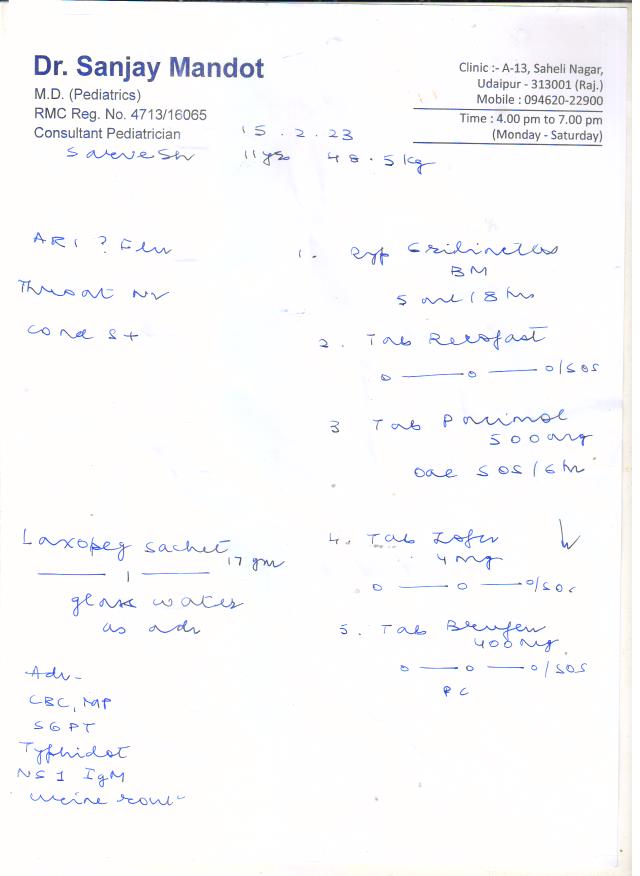 Dr. Sanjay Mandot
M.D. (Pediatrics)
RMC Reg. No. 4713/16065
Consultant Pediatrician
Clinic :- A-13, Saheli Nagar,
Udaipur - 313001 (Raj.)
Mobile : 094620-22900
Time : 4.00 pm to 7.00 pm
(Monday - Saturday)
15.2.23
Sarvesh 11yrs 48.5kg
ARI ? Flu
Throat
S+
1. Syp
BM
5 ml / 8 hrs
2. Tab
0 — 0 — 0/SOS
3 Tab
500mg
One SOS/6 hr
4. Tab Zofer
4mg
0 — 0 — 0/SOS
5. Tab Brufen
400mg
0 — 0 — 0/SOS
PC
Laxopeg sachet
17 gm
— 1 —
glass water
as adv
Adv-
CBC, MP
SGPT
Typhidot
NS1 IgM
urine rout-